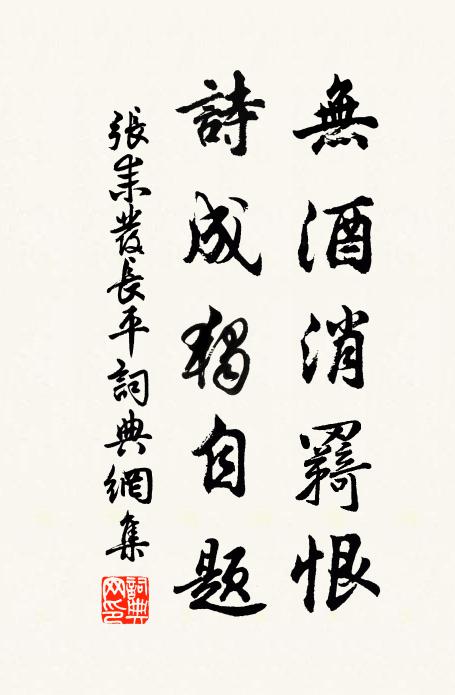 無酒消羇恨
詩成獨自題
張耒發長平詞典網集
詞典網印